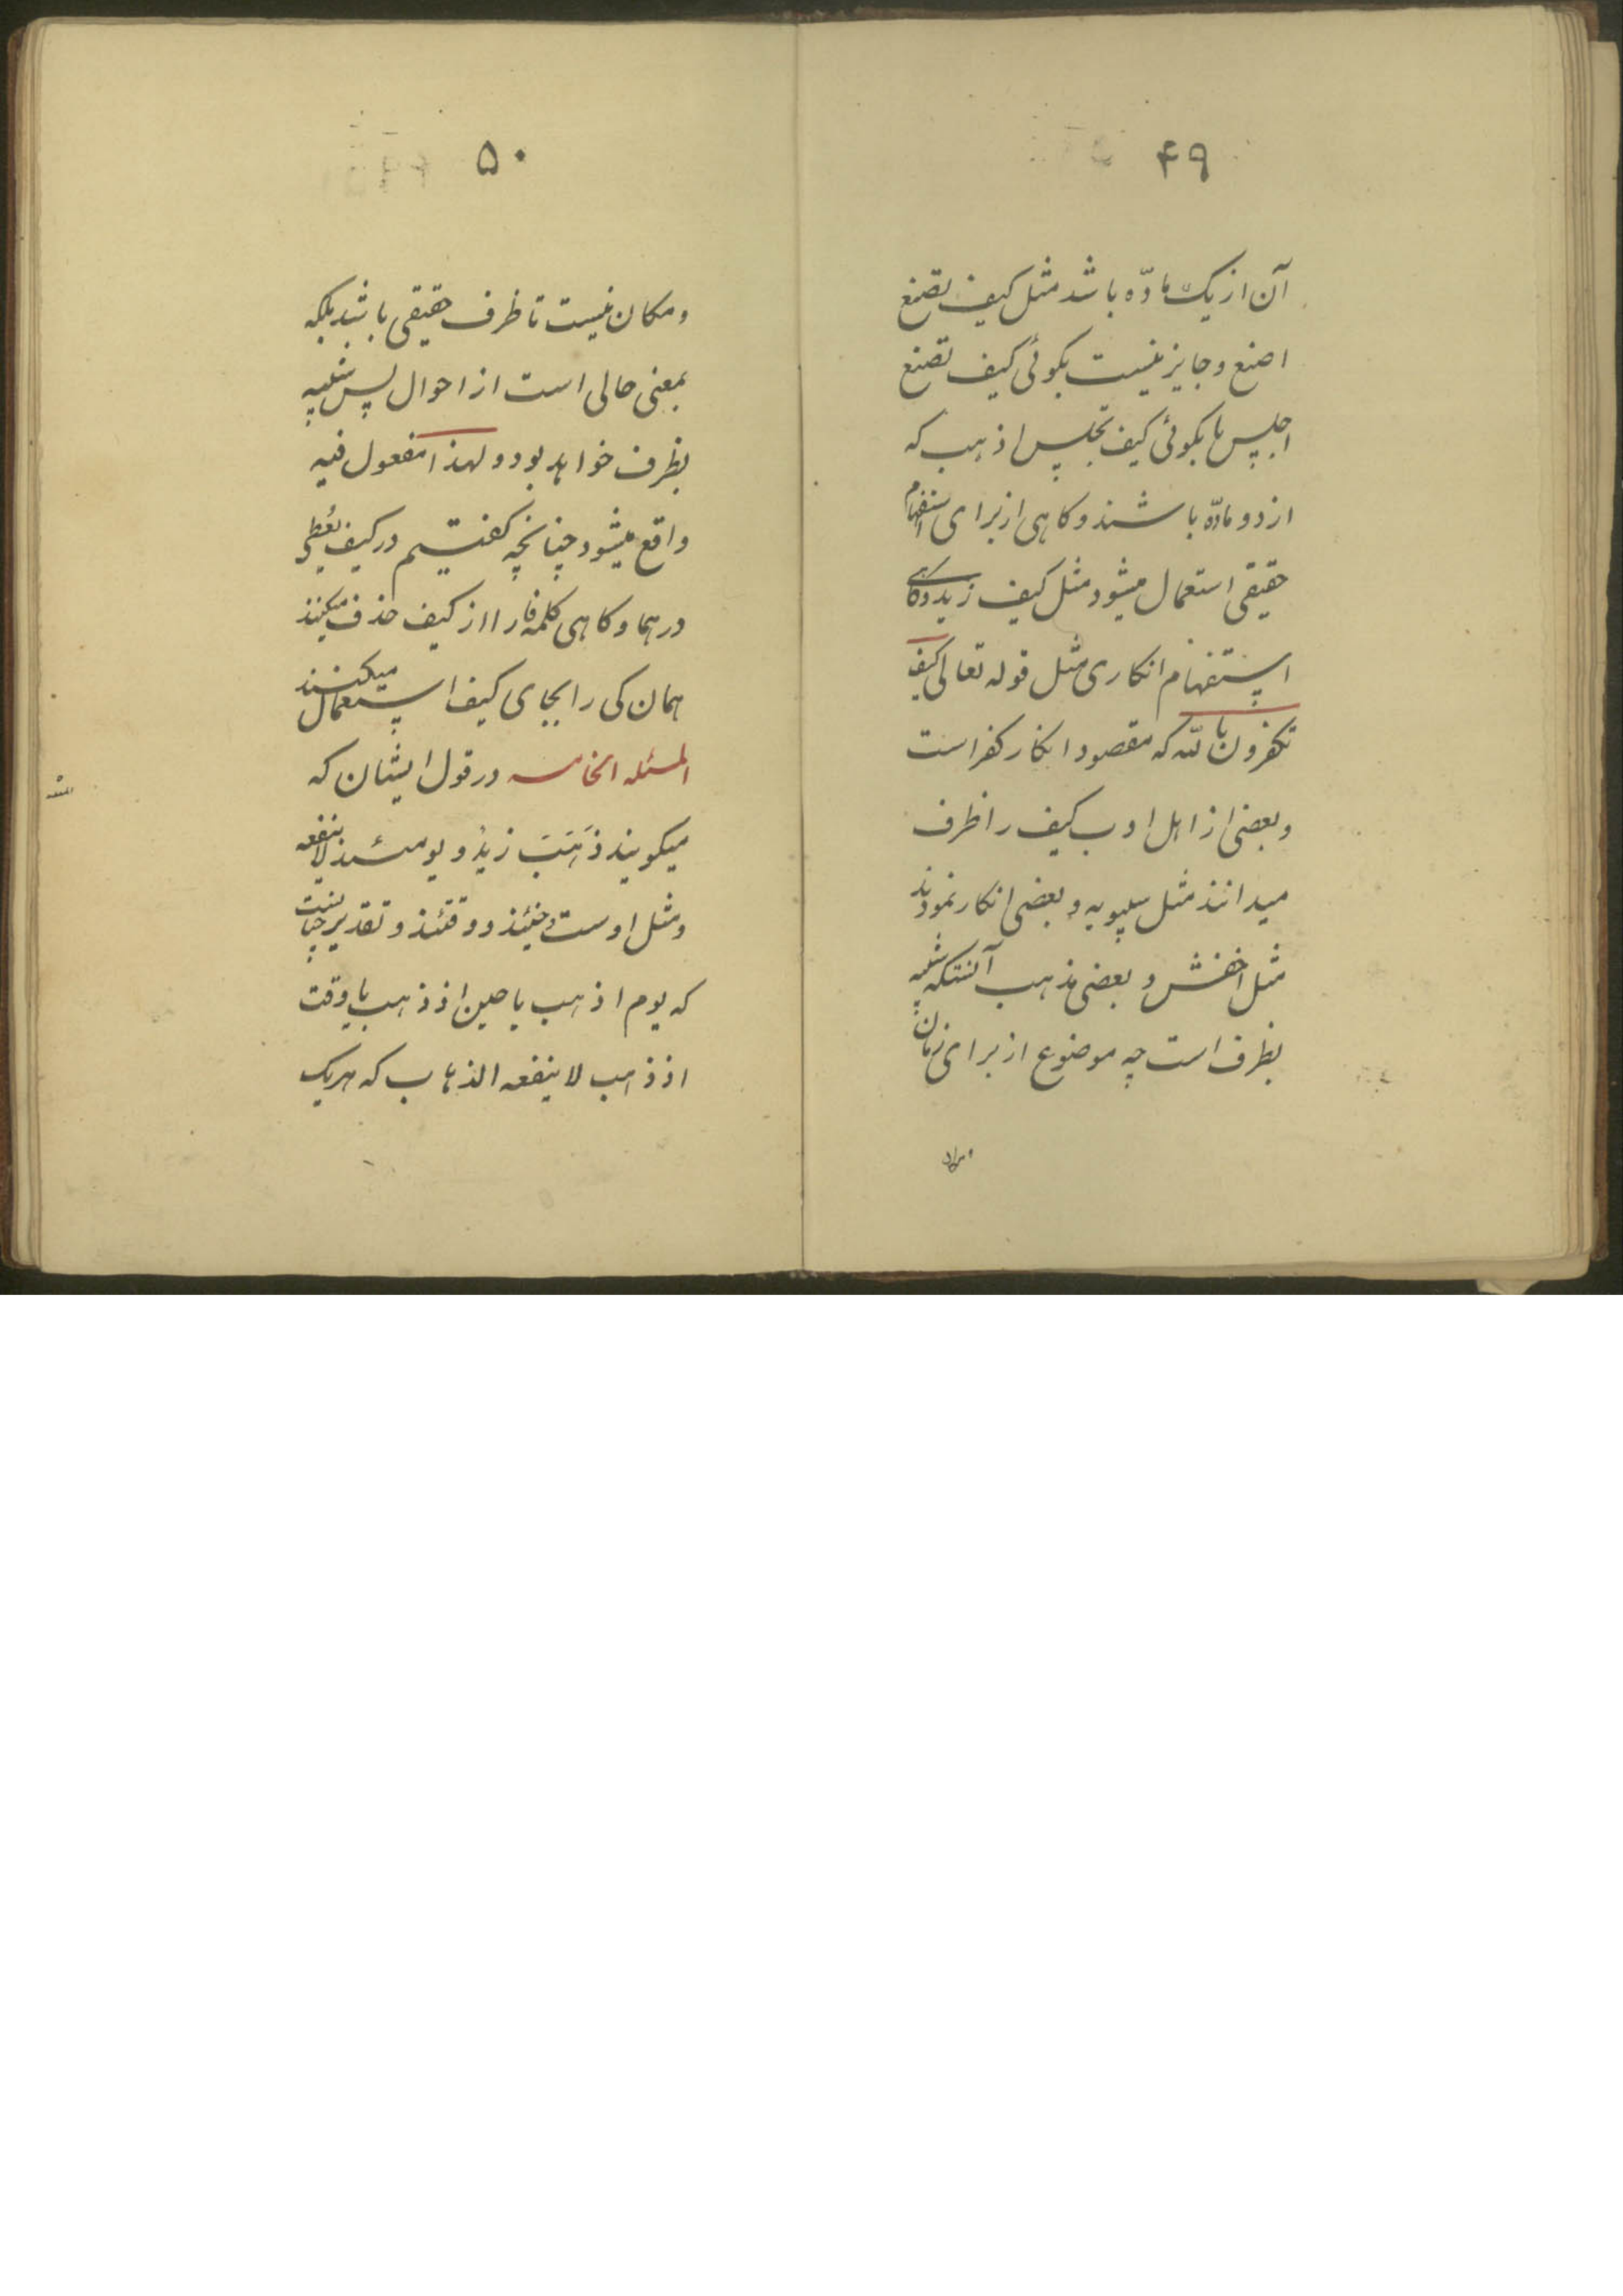 ۴۹
آن از یک مادّه باشد مثل کیف تصنع
اصنع و جایز نیست بکوئی کیف تصنع
اجلس یا بکوئی کیف تجلس اذهب که
از دو مادّه باشند و کاهی از برای استفهام
حقیقی استعمال میشود مثل کیف زید و کاهی
استفهام انکاری مثل قوله تعالی کیف
تکفرون بالله که مقصود انکار کفر است
و بعضی از اهل ادب کیف را ظرف
میدانند مثل سیبویه و بعضی انکار نمودند
مثل اخفش و بعضی مذهب آنستکه شبیه
بظرف است چه موضوع از برای زمان
و مکان
۵۰
و مکان نیست تا ظرف حقیقی باشد بلکه
بمعنی حالی است از احوال پس شبیه
بظرف خواهد بود و لهذا مفعول فیه
واقع میشود چنانچه کفتیم در کیف یُعطی
درهما و کاهی کلمه فا را از کیف حذف میکنند
همان کی را بجای کیف استعمال میکنند
المسئله الخامسه در قول ایشان که
میکویند ذَهَبَ زیدٌ و یومئذ لا ینفعه
و مثل اوست حینئذ و وقتئذ و تقدیر چنانست
که یوم اذ ذهب یا حین اذ ذهب یا وقت
اذ ذهب لا ینفعه الذهاب که هریک